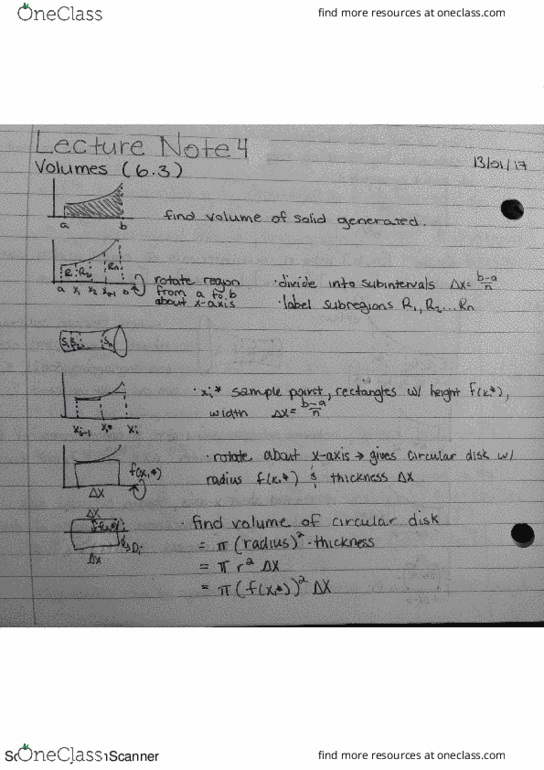 OneClass
find more resources at oneclass.com
Lecture Note 4
13/01/17
Volumes (6.3)
a b
find volume of solid generated.
R₁ R₂ Rn
a x₁ x₂ b
rotate region
from a to b
about x-axis
· divide into subintervals Δx = b-a/n
· label subregions R₁, R₂ ... Rn
· xᵢ* sample point, rectangles w/ height f(xᵢ*),
width Δx = b-a/n
xᵢ₋₁ xᵢ* xᵢ
f(xᵢ*)
Δx
· rotate about x-axis → gives circular disk w/
radius f(xᵢ*) & thickness Δx
Δx
Dᵢ
Δx
· find volume of circular disk
= π (radius)² · thickness
= π r² Δx
= π (f(xᵢ*))² Δx
OneClass
Scanner
find more resources at oneclass.com